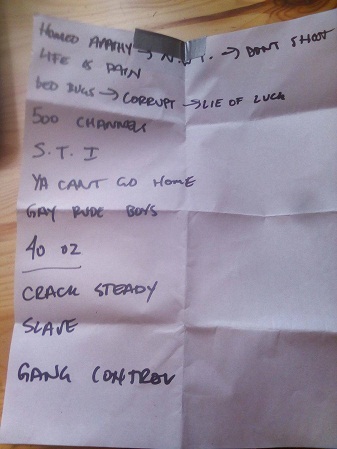 HOMED APATHY → N.W.T. → DONT SHOOT
LIFE IS PAIN
BED BUGS → CORRUPT → LIE OF LUCK
500 CHANNELS
S.T.I
YA CANT GO HOME
GAY RUDE BOYS
40 OZ
CRACK STEADY
SLAVE
GANG CONTROL